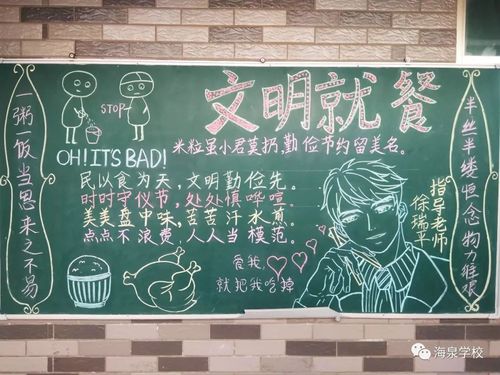 文明就餐
米粒虽小君莫扔,勤俭节约留美名。
一粥一饭当思来之不易
STOP
OH! IT'S BAD!
民以食为天,文明勤俭先。
时时守仪节,处处慎哗喧。
美美盘中味,苦苦汗水煎。
点点不浪费,人人当模范。
爱我,
就把我吃掉
指导老师
徐瑞平
半丝半缕恒念物力维艰
海泉学校